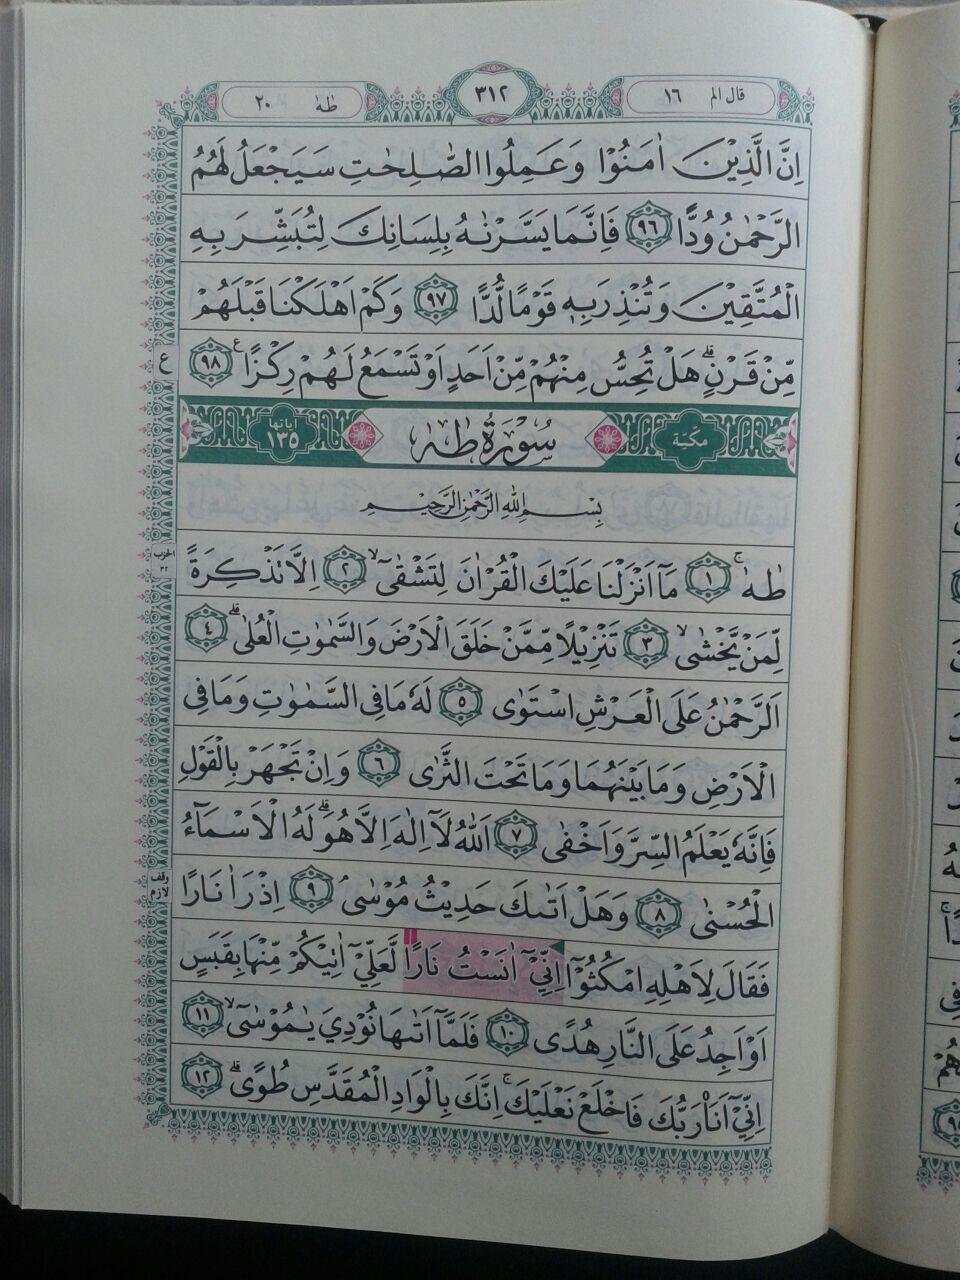 قال الم ١٦
٣١٢
طٰهٰ ٢٠
اِنَّ الَّذِيْنَ اٰمَنُوْا وَعَمِلُوا الصّٰلِحٰتِ سَيَجْعَلُ لَهُمُ
الرَّحْمٰنُ وُدًّا ٩٦ فَاِنَّمَا يَسَّرْنٰهُ بِلِسَانِكَ لِتُبَشِّرَ بِهِ
الْمُتَّقِيْنَ وَتُنْذِرَ بِهٖ قَوْمًا لُّدًّا ٩٧ وَكَمْ اَهْلَكْنَا قَبْلَهُمْ
مِّنْ قَرْنٍۗ هَلْ تُحِسُّ مِنْهُمْ مِّنْ اَحَدٍ اَوْ تَسْمَعُ لَهُمْ رِكْزًا ࣖ ٩٨
ع
مكيّة
سُوْرَةُ طٰهٰ
اٰياتها ١٣٥
بِسْمِ اللهِ الرَّحْمٰنِ الرَّحِيْمِ
طٰهٰ ۚ ١ مَآ اَنْزَلْنَا عَلَيْكَ الْقُرْاٰنَ لِتَشْقٰٓى ۙ ٢ اِلَّا تَذْكِرَةً
الحزب ٣٢
لِّمَنْ يَّخْشٰى ۙ ٣ تَنْزِيْلًا مِّمَّنْ خَلَقَ الْاَرْضَ وَالسَّمٰوٰتِ الْعُلٰى ۗ ٤
اَلرَّحْمٰنُ عَلَى الْعَرْشِ اسْتَوٰى ٥ لَهٗ مَا فِى السَّمٰوٰتِ وَمَا فِى
الْاَرْضِ وَمَا بَيْنَهُمَا وَمَا تَحْتَ الثَّرٰى ٦ وَاِنْ تَجْهَرْ بِالْقَوْلِ
فَاِنَّهٗ يَعْلَمُ السِّرَّ وَاَخْفٰى ٧ اَللّٰهُ لَآ اِلٰهَ اِلَّا هُوَۗ لَهُ الْاَسْمَاۤءُ
الْحُسْنٰى ٨ وَهَلْ اَتٰىكَ حَدِيْثُ مُوْسٰىۘ ٩ اِذْ رَاٰ نَارًا
وقف لازم
فَقَالَ لِاَهْلِهِ امْكُثُوْٓا اِنِّيْٓ اٰنَسْتُ نَارًا لَّعَلِّيْٓ اٰتِيْكُمْ مِّنْهَا بِقَبَسٍ
اَوْ اَجِدُ عَلَى النَّارِ هُدًى ١٠ فَلَمَّآ اَتٰىهَا نُوْدِيَ يٰمُوْسٰٓى ۙ ١١
اِنِّيْٓ اَنَا۠ رَبُّكَ فَاخْلَعْ نَعْلَيْكَۚ اِنَّكَ بِالْوَادِ الْمُقَدَّسِ طُوًىۗ ١٢